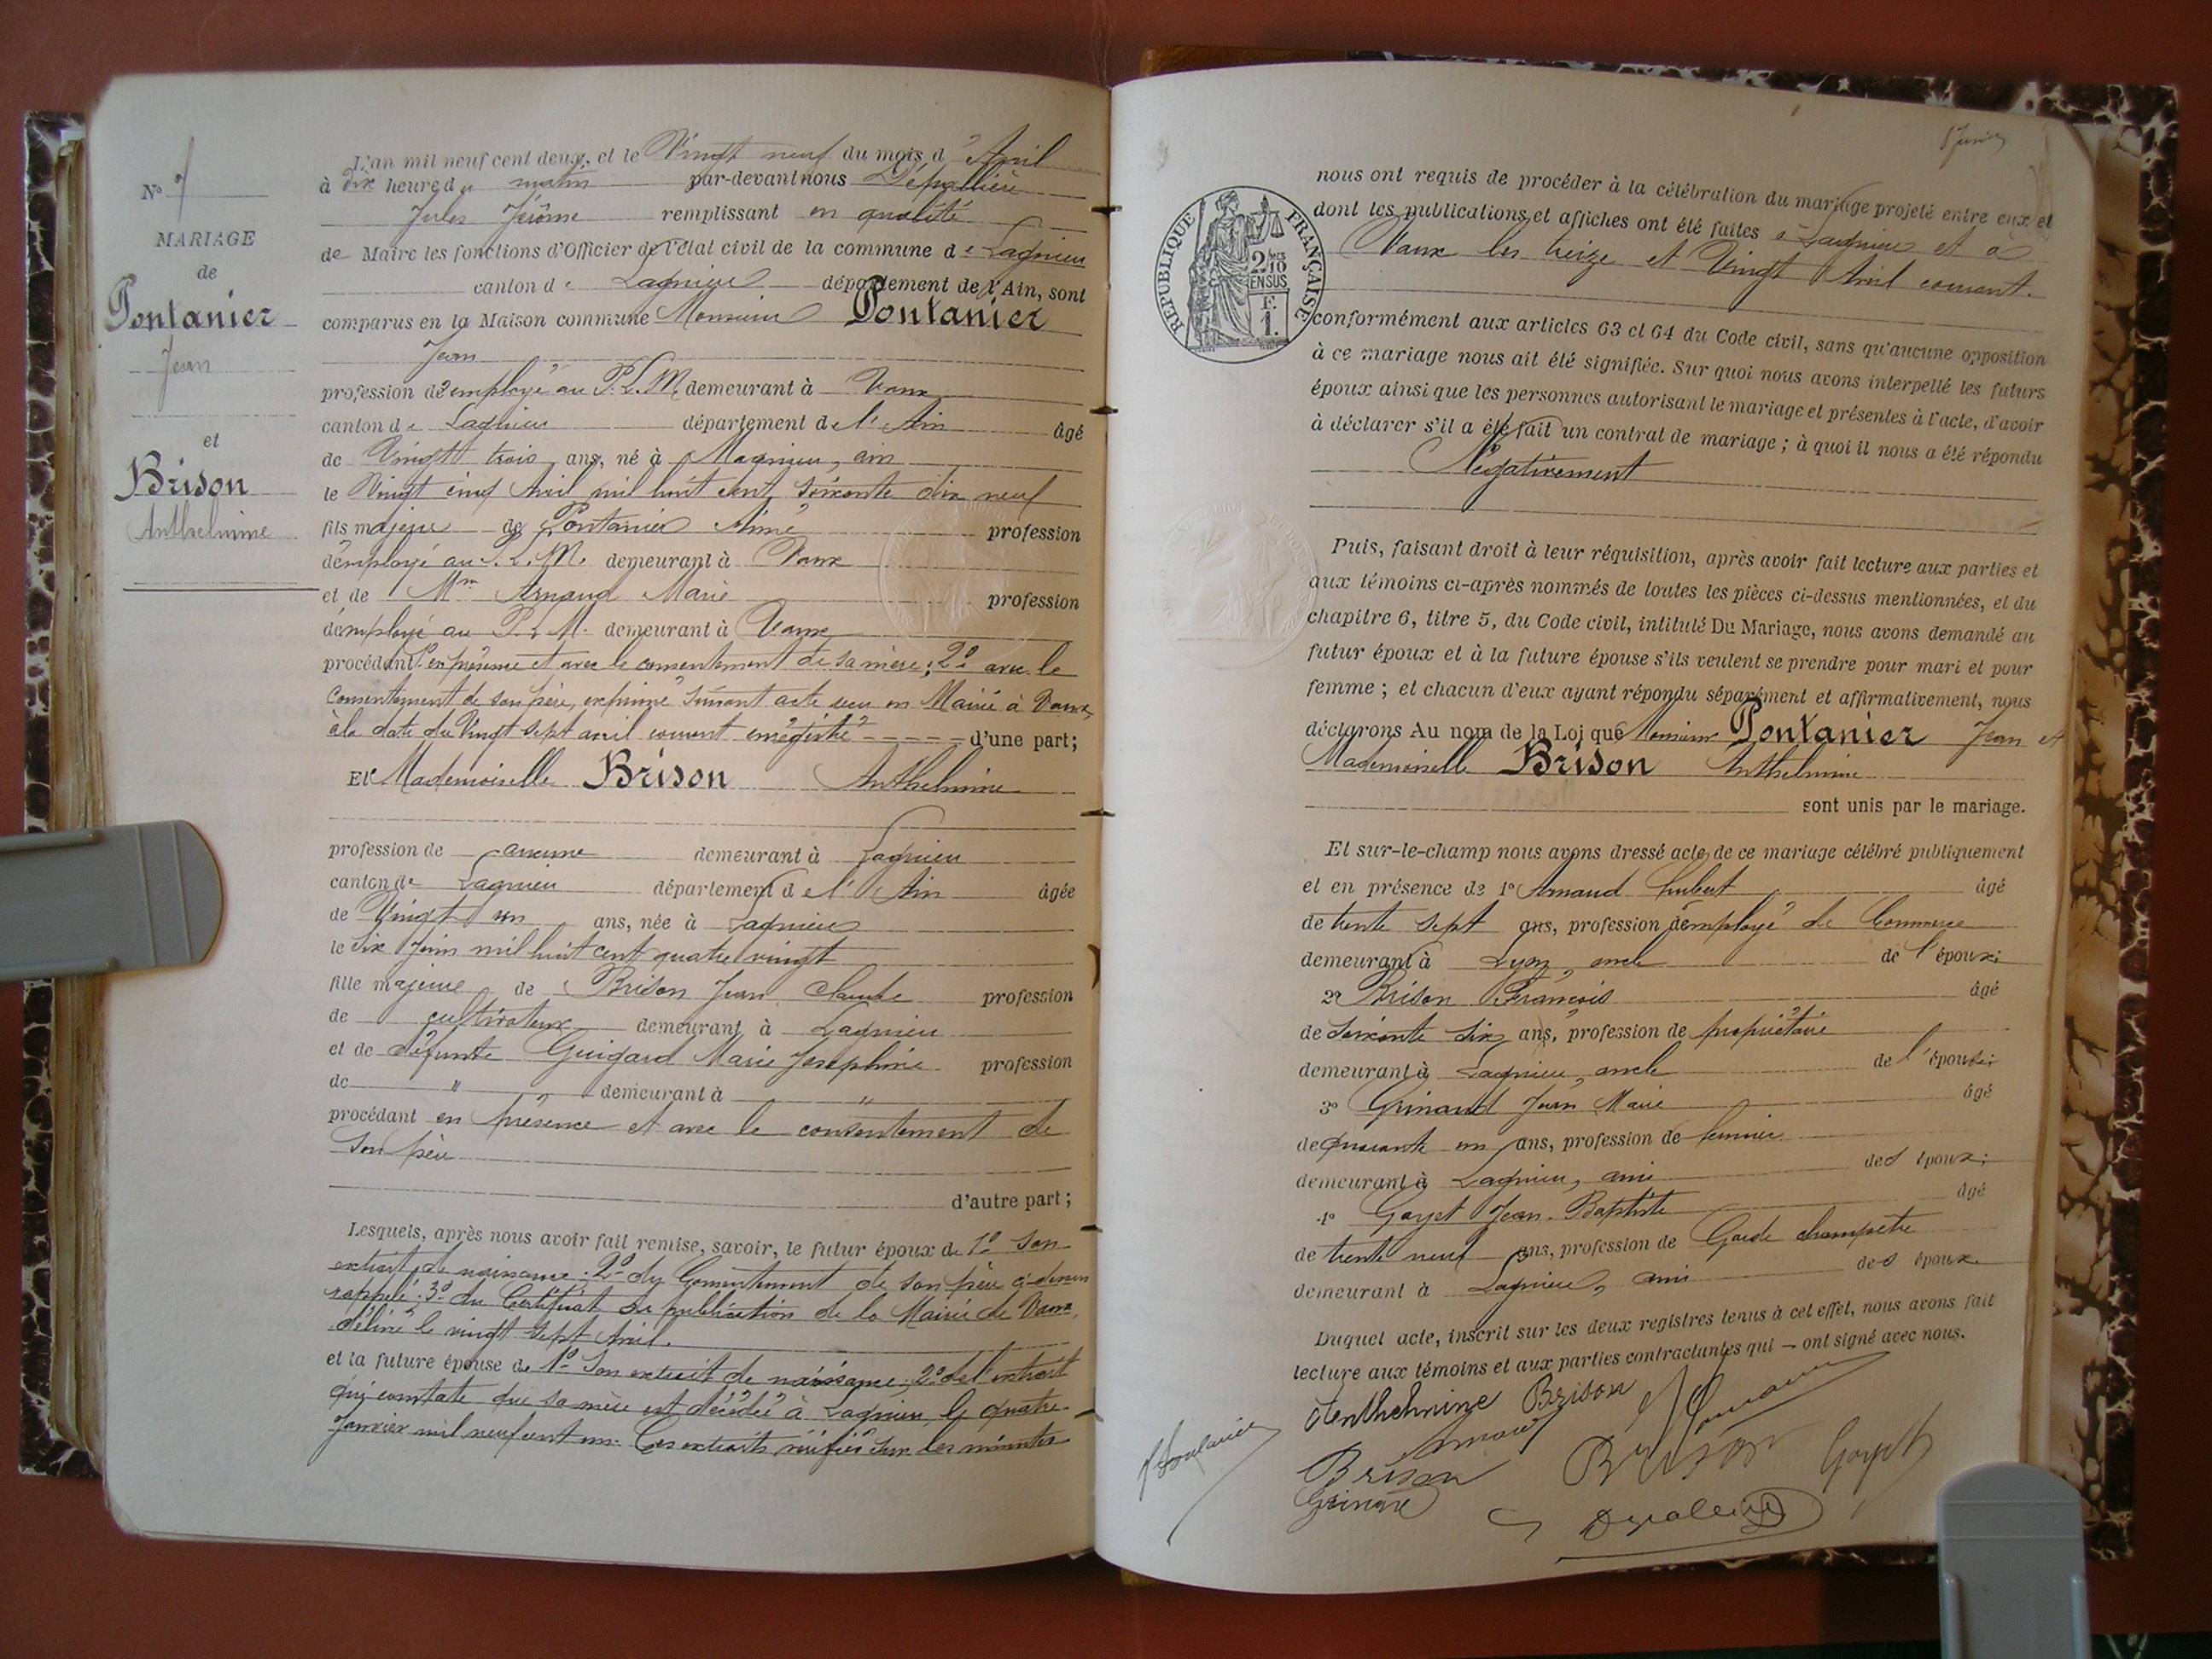 N° 7
MARIAGE
de
Pontanier
Jean
et
Brison
Anthelmine
L'an mil neuf cent deux, et le Vingt neuf du mois d'Avril
à dix heure du matin par-devant nous Dépallière
Jules Jérôme remplissant en qualité
de Maire les fonctions d'Officier de l'état civil de la commune de Lagnieu
canton de Lagnieu département de l'Ain, sont
comparus en la Maison commune Monsieur Pontanier
Jean
profession d'employé au P. L. M. demeurant à Vaux
canton de Lagnieu département de l'Ain âgé
de Vingt trois ans, né à Magnieu, ain
le Vingt cinq Avril mil huit cent soixante dix neuf
fils majeur de Pontanier Aimé profession
d'employé au P. L. M. demeurant à Vaux
et de Mme Arnaud Marie profession
d'employé au P. L. M. demeurant à Vaux
procédant 1° en présence et avec le consentement de sa mère; 2° avec le
consentement de son père, exprimé suivant acte reçu en Mairie à Vaux,
à la date du Vingt sept avril courant enregistré d'une part;
Et Mademoiselle Brison Anthelmine
profession de aucune demeurant à Lagnieu
canton de Lagnieu département de l'Ain âgée
de Vingt un ans, née à Lagnieu
le six Juin mil huit cent quatre vingt
fille majeure de Brison Jean Claude profession
de cultivateur demeurant à Lagnieu
et de défunte Guigard Marie Joséphine profession
de " demeurant à "
procédant en présence et avec le consentement de
son père
d'autre part;
Lesquels, après nous avoir fait remise, savoir, le futur époux de 1° son
extrait de naissance; 2° du Consentement de son père ci-dessus
rappelé; 3° du Certificat de publication de la Mairie de Vaux,
délivré le vingt sept Avril.
et la future épouse de 1° son extrait de naissance; 2° de l'extrait
qui constate que sa mère est décédée à Lagnieu le quatre
Janvier mil neuf cent un. Ces extraits vérifiés sur les minutes
RÉPUBLIQUE FRANÇAISE
2/10 EN SUS
F.
1.
nous ont requis de procéder à la célébration du mariage projeté entre eux et
dont les publications et affiches ont été faites à Lagnieu et à
Vaux les treize et Vingt Avril courant.
conformément aux articles 63 et 64 du Code civil, sans qu'aucune opposition
à ce mariage nous ait été signifiée. Sur quoi nous avons interpellé les futurs
époux ainsi que les personnes autorisant le mariage et présentes à l'acte, d'avoir
à déclarer s'il a été fait un contrat de mariage; à quoi il nous a été répondu
Négativement
Puis, faisant droit à leur réquisition, après avoir fait lecture aux parties et
aux témoins ci-après nommés de toutes les pièces ci-dessus mentionnées, et du
chapitre 6, titre 5, du Code civil, intitulé Du Mariage, nous avons demandé au
futur époux et à la future épouse s'ils veulent se prendre pour mari et pour
femme; et chacun d'eux ayant répondu séparément et affirmativement, nous
déclarons Au nom de la Loi que Monsieur Pontanier Jean et
Mademoiselle Brison Anthelmine
sont unis par le mariage.
Et sur-le-champ nous avons dressé acte de ce mariage célébré publiquement
et en présence de 1° Arnaud Hubert âgé
de trente sept ans, profession d'employé de Commerce
demeurant à Lyon, oncle de l'époux;
2° Brison François âgé
de soixante six ans, profession de propriétaire
demeurant à Lagnieu, oncle de l'épouse;
3° Grinand Jean Marie âgé
de quarante un ans, profession de fermier
demeurant à Lagnieu, ami des époux;
4° Goyet Jean-Baptiste âgé
de trente neuf ans, profession de Garde champêtre
demeurant à Lagnieu, ami des époux.
Duquel acte, inscrit sur les deux registres tenus à cet effet, nous avons fait
lecture aux témoins et aux parties contractantes qui — ont signé avec nous.
Anthelmine Brison
Arnaud
Brison Brison Goyet
Grinand